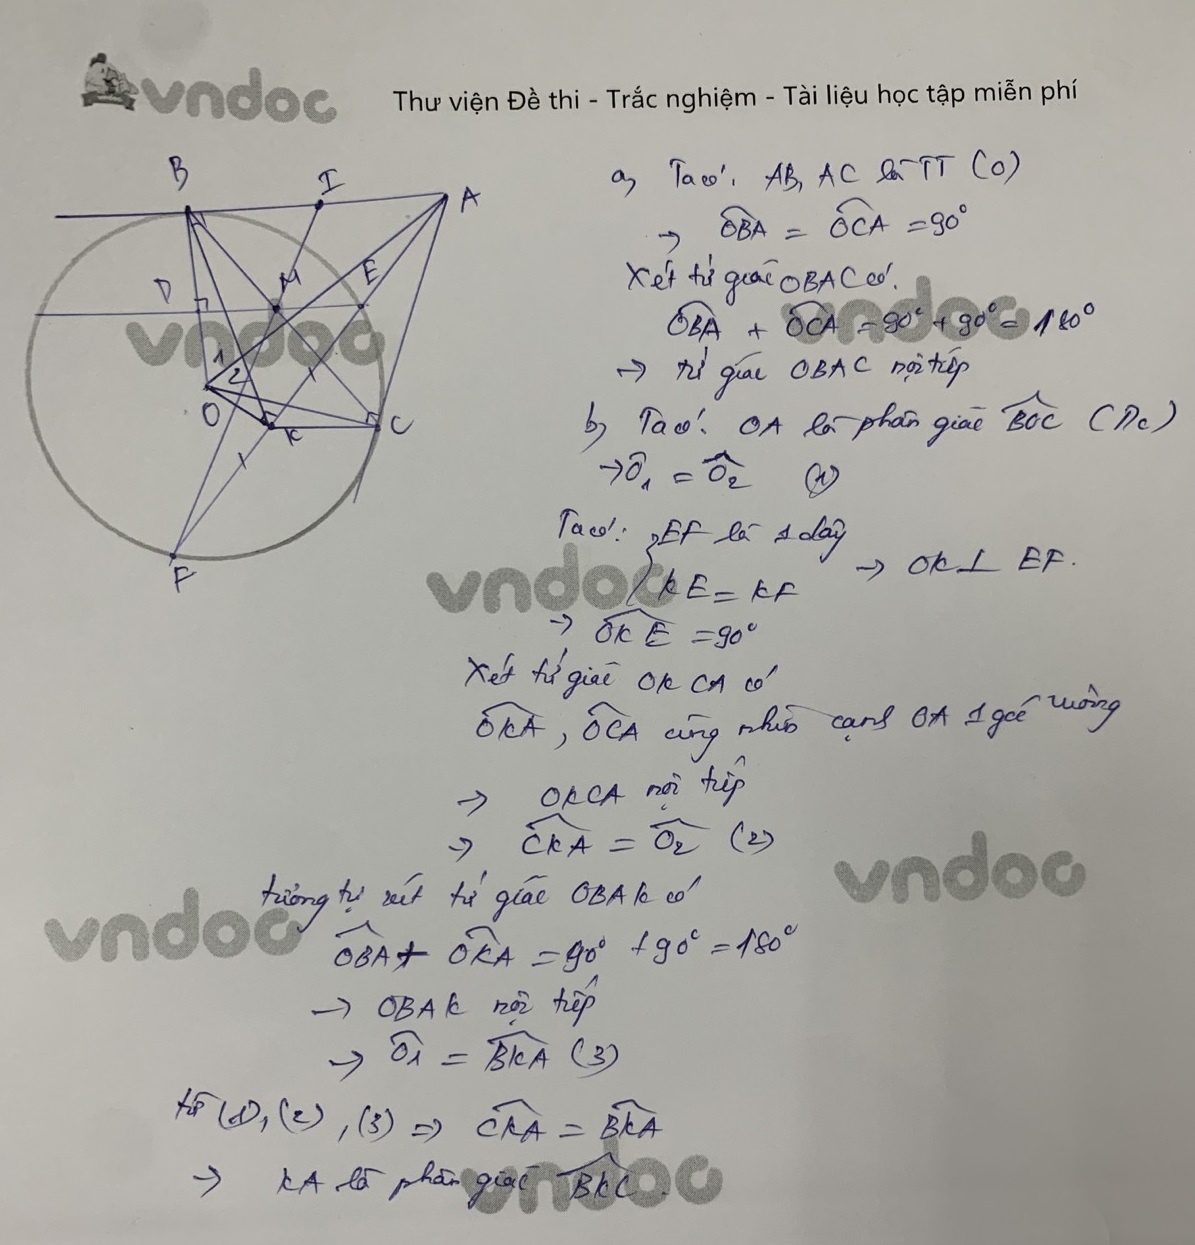 vndoc
Thư viện Đề thi - Trắc nghiệm - Tài liệu học tập miễn phí
B
I
A
D
M
E
1
2
O
K
C
F
a, Ta có: AB, AC là TT (O)
→ OBA = OCA = 90°
Xét tứ giác OBAC có:
OBA + OCA = 90° + 90° = 180°
→ tứ giác OBAC nội tiếp
b, Ta có: OA là phân giác BOC (T/c)
→ O₁ = O₂ (1)
Ta có: { EF là 1 dây
KE = KF → OK ⊥ EF.
→ OKE = 90°
Xét tứ giác OKCA có
OKA, OCA cùng nhìn cạnh OA 1 góc vuông
→ OKCA nội tiếp
→ CKA = O₂ (2)
tương tự xét tứ giác OBAK có
OBA + OKA = 90° + 90° = 180°
→ OBAK nội tiếp
→ O₁ = BKA (3)
từ (1), (2), (3) ⇒ CKA = BKA
→ KA là phân giác BKC.
vndoc
vndoc
vndoc
vndoc
vndoc
vndoc